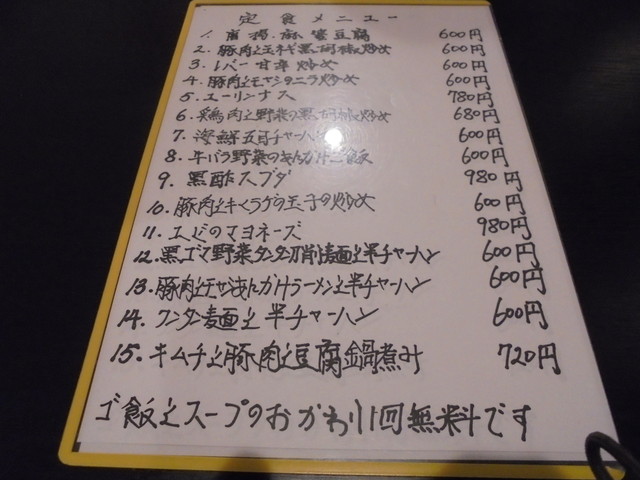 定食メニュー
1. 麻婆豆腐 600円
2. 豚肉と玉ネギ黒胡椒炒め 600円
3. レバー甘辛炒め 600円
4. 豚肉とモヤシタニラ炒め 600円
5. ユーリンチス 780円
6. 鶏肉と野菜の黒胡椒炒め 680円
7. 海鮮五目チャーハン 600円
8. 牛バラ野菜のあんかけご飯 600円
9. 黒酢スブタ 980円
10. 豚肉とキクラゲの玉子の炒め 600円
11. エビのマヨネーズ 980円
12. 黒ゴマ野菜タンタン刀削麺と半チャーハン 600円
13. 豚肉とモヤシあんかけラーメンと半チャーハン 600円
14. ワンタン麺と半チャーハン 600円
15. キムチと豚肉と豆腐鍋煮み 720円
ゴ飯とスープのおかわり1回無料です